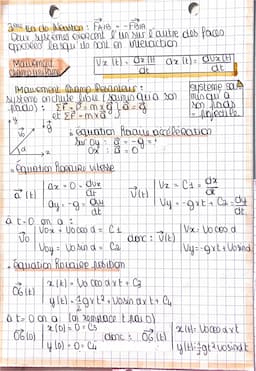 3ème loi de Newton : F A/B = - F B/A
Deux systèmes exercent l'un sur l'autre des forces
opposées lorsqu'ils sont en interaction
Mouvement
champ uniforme
Vx(t) = dx(t)/dt ax(t) = dVx(t)/dt
Mouvement champ pesanteur :
système en chute libre (soumis qu'à son
poids) : ΣF = P = m×g a = g
et ΣF = m×a
système soumis
qu'à
son poids
=
Équation horaire accélération
sur oy : a = -g
ox : a = 0
Équation horaire vitesse
a(t) | ax = 0 = dvx/dt
ay = -g = dvy/dt
V(t) | Vx = C1 = dx/dt
Vy = -g×t + C2 = dy/dt
à t=0 on a :
V0 | V0x = V0 cos α = C1
V0y = V0 sin α = C2
donc : V(t) | Vx = V0 cos α
Vy = -g×t + V0 sin α
Équation horaire position
OG(t) | x(t) = V0 cos α×t + C3
y(t) = -1/2 g×t² + V0 sin α×t + C4
à t=0 on a (on remplace t par 0)
OG(0) | x(0) = 0 = C3
y(0) = 0 = C4
donc : OG(t) | x(t) = V0 cos α×t
y(t) = -1/2 gt² + V0 sin α t